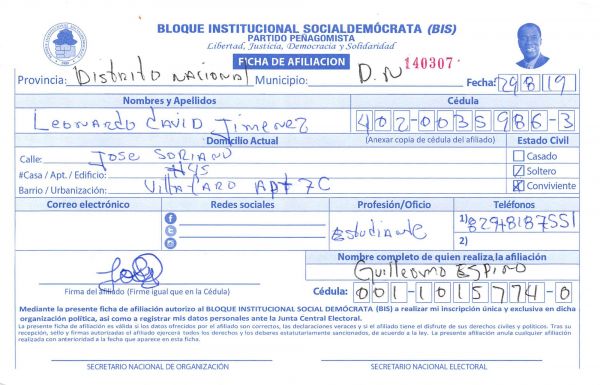 BLOQUE INSTITUCIONAL SOCIALDEMÓCRATA (BIS)
PARTIDO PEÑAGOMISTA
Libertad, Justicia, Democracia y Solidaridad
FICHA DE AFILIACION
140307
Provincia: Distrito Nacional Municipio: D.N Fecha: 29/8/19
Nombres y Apellidos Cédula
Leonardo David Jimenez 402-0035986-3
Domicilio Actual (Anexar copia de cédula del afiliado) Estado Civil
Calle: Jose Soriano Casado
#Casa / Apt. / Edificio: #45 Soltero
Barrio / Urbanización: Villa Caro Apt 7C Conviviente
Correo electrónico Redes sociales Profesión/Oficio Teléfonos
Estudiante 1) 8294818755
2)
Nombre completo de quien realiza la afiliación
Guillermo Espino
Firma del afiliado (Firme igual que en la Cédula) Cédula: 001-1015774-0
Mediante la presente ficha de afiliación autorizo al BLOQUE INSTITUCIONAL SOCIAL DEMÓCRATA (BIS) a realizar mi inscripción única y exclusiva en dicha
organización política, así como a registrar mis datos personales ante la Junta Central Electoral.
La presente ficha de afiliación es válida si los datos ofrecidos por el afiliado son correctos, las declaraciones veraces y si el afiliado tiene el disfrute de sus derechos civiles y políticos. Tras su
recepción, sello y firmas autorizadas el afiliado ejercerá todos los derechos y los deberes estatutariamente sancionados, de acuerdo a la ley. La presente afiliación anula cualquier afiliación
realizada con anterioridad a la fecha que aparece en esta ficha.
SECRETARIO NACIONAL DE ORGANIZACIÓN SECRETARIO NACIONAL ELECTORAL